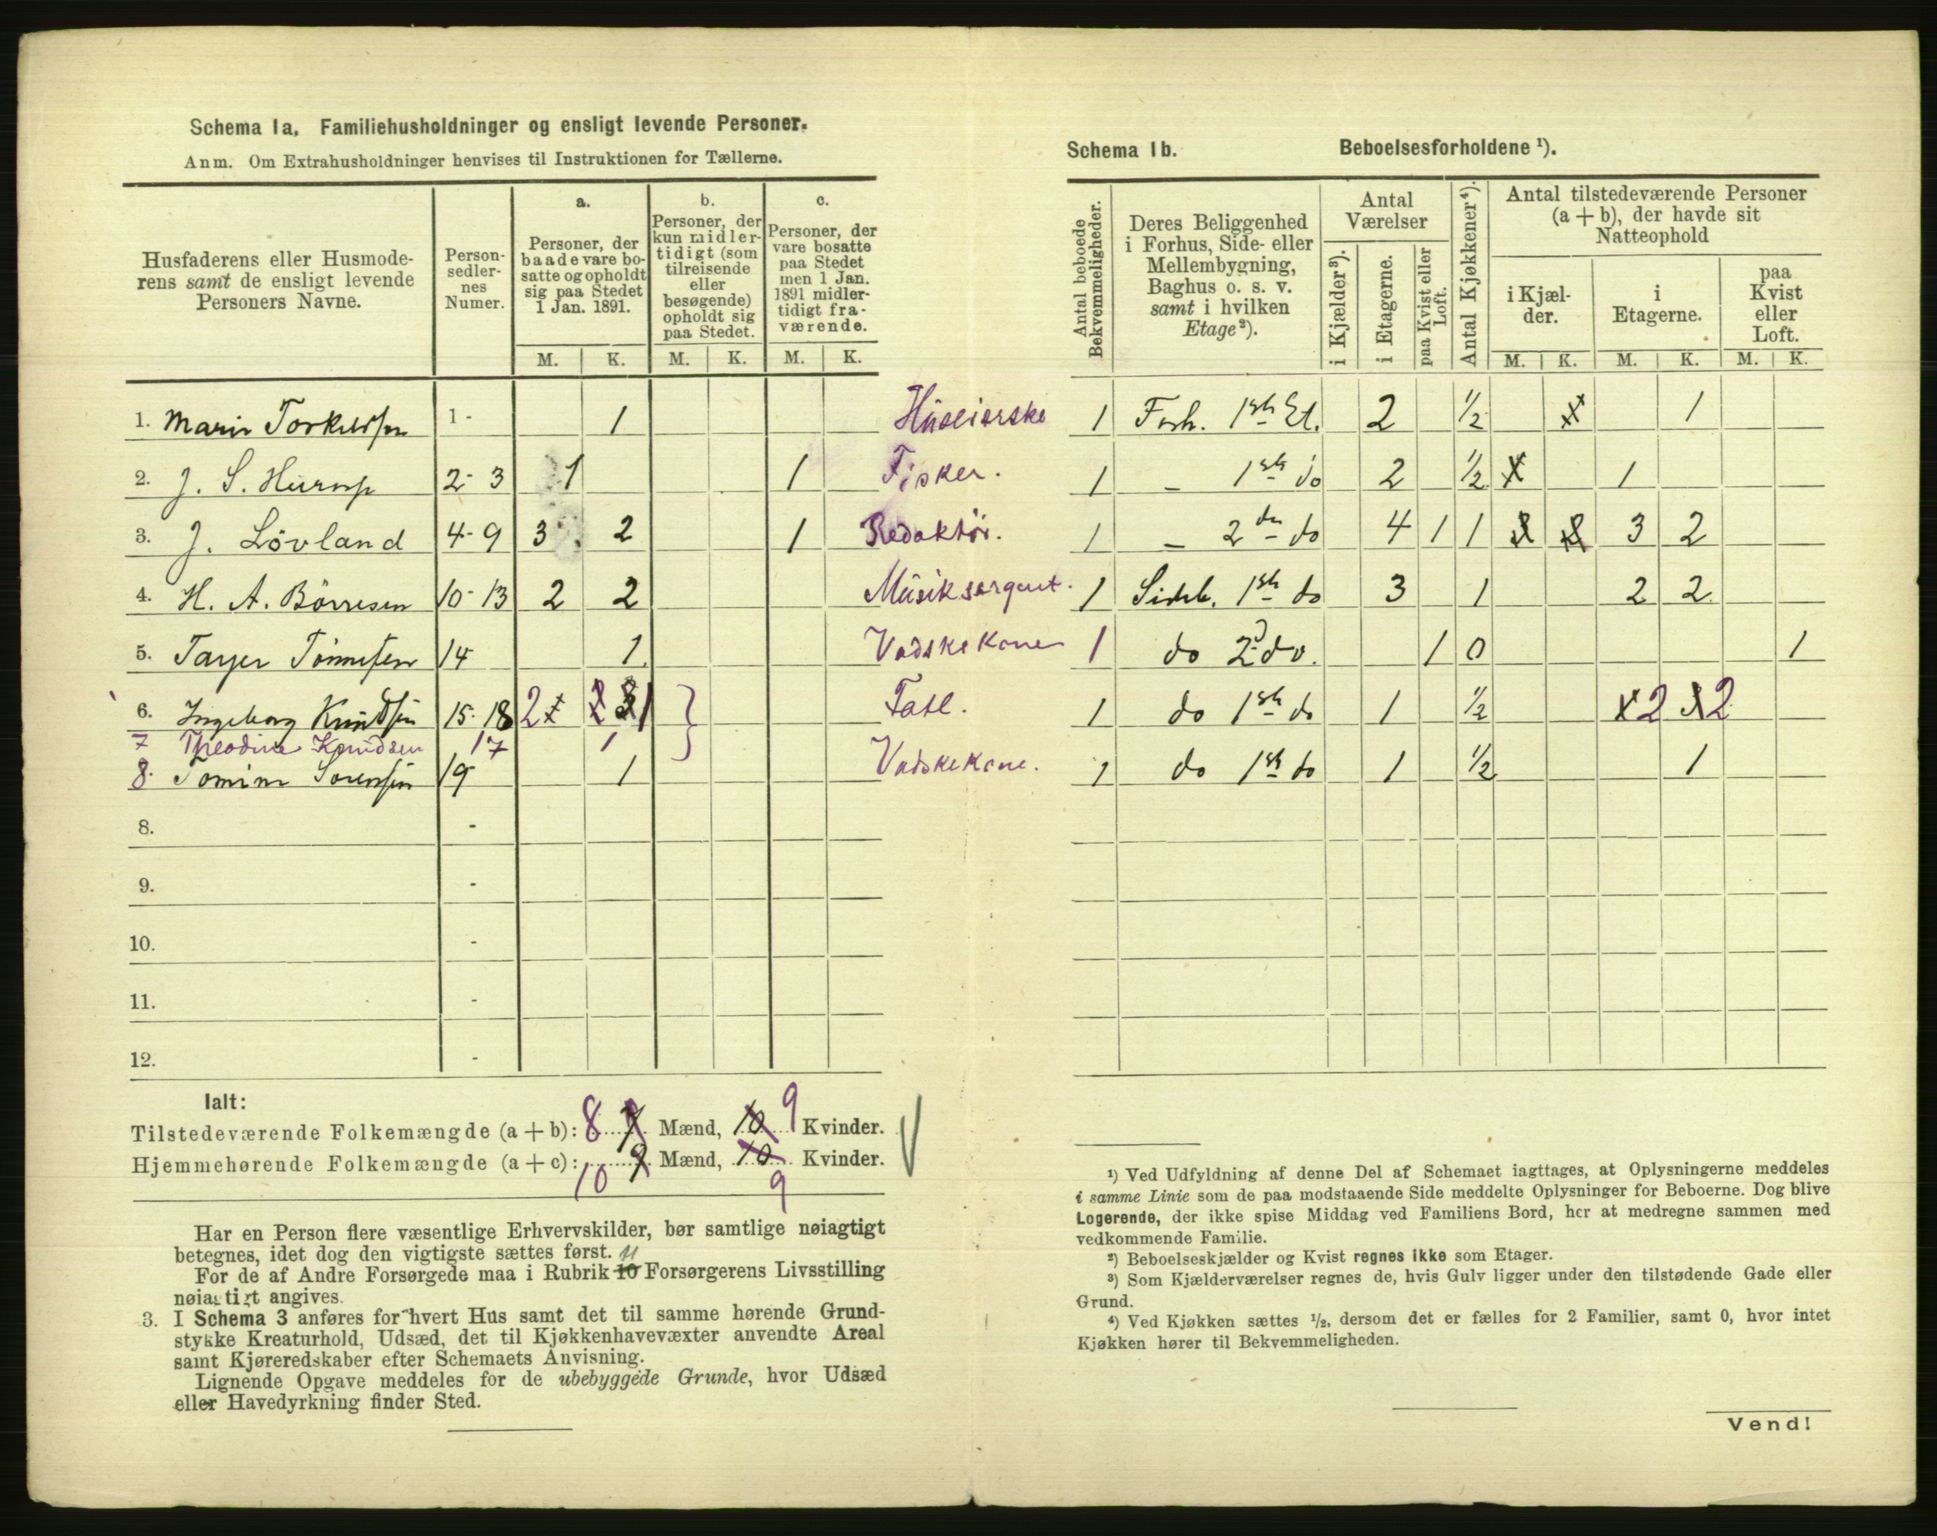 Schema 1a. Familiehusholdninger og ensligt levende Personer.
Anm. Om Extrahusholdninger henvises til Instruktionen for Tællerne.
Husfaderens eller Husmoderens samt de ensligt levende Personers Navne.
Personsedlernes Numer.
a. Personer, der baade vare bosatte og opholdt sig paa Stedet 1 Jan. 1891.
b. Personer, der kun midlertidigt (som tilreisende eller besøgende) opholdt sig paa Stedet.
c. Personer, der vare bosatte paa Stedet men 1 Jan. 1891 midlertidigt fraværende.
M. K. M. K. M. K.
1. Marie Torkildsen 1 - 1 
2. J. S. Hurup 2 - 3 1 1 Fisker.
3. J. Lövland 4 - 9 3 2 1 Redaktör.
4. H. A. Börresen 10 - 13 2 2 Müsiksergent.
5. Tarjer Tönnesen 14 1 Vadskekone
6. Ingeborg Knudsen 15 - 18 2 1 Fatl.
7 Theodine Knudsen 17 1
8. Tomine Sörensen 19 1 Vadskekone.
8. -
9. -
10. -
11. -
12. -
Ialt:
Tilstedeværende Folkemængde (a + b): 8 Mænd, 10 9 Kvinder.
Hjemmehørende Folkemængde (a + c): 10 9 Mænd, 10 9 Kvinder.
Har en Person flere væsentlige Erhvervskilder, bør samtlige nøiagtigt
betegnes, idet dog den vigtigste sættes først.
11
For de af Andre Forsørgede maa i Rubrik 10 Forsørgerens Livsstilling
nøiagtigt angives.
3. I Schema 3 anføres for hvert Hus samt det til samme hørende Grund-
stykke Kreaturhold, Udsæd, det til Kjøkkenhavevæxter anvendte Areal
samt Kjøreredskaber efter Schemaets Anvisning.
Lignende Opgave meddeles for de ubebyggede Grunde, hvor Udsæd
eller Havedyrkning finder Sted.
Schema 1b. Beboelsesforholdene ¹).
Antal beboede Bekvemmeligheder.
Deres Beliggenhed i Forhus, Side- eller Mellembygning, Baghus o. s. v. samt i hvilken Etage ²).
Antal Værelser
i Kjælder ³).
i Etagerne.
paa Kvist eller Loft.
Antal Kjøkkener ⁴).
Antal tilstedeværende Personer (a + b), der havde sit Natteophold
i Kjælder.
i Etagerne.
paa Kvist eller Loft.
M. K. M. K. M. K.
1 Forh. 1ste Et. 2 ½ 1
1 - 1ste do 2 ½ 1
1 - 2den do 4 1 1 3 2
1 Sideb. 1ste do 3 1 2 2
1 do 2 do. 1 0 1
1 do 1ste do 1 ½ 2 2
1 do 1ste do 1 ½ 1
¹) Ved Udfyldning af denne Del af Schemaet iagttages, at Oplysningerne meddeles
i samme Linie som de paa modstaaende Side meddelte Oplysninger for Beboerne. Dog blive
Logerende, der ikke spise Middag ved Familiens Bord, her at medregne sammen med
vedkommende Familie.
²) Beboelseskjælder og Kvist regnes ikke som Etager.
³) Som Kjælderværelser regnes de, hvis Gulv ligger under den tilstødende Gade eller
Grund.
⁴) Ved Kjøkken sættes ½, dersom det er fælles for 2 Familier, samt 0, hvor intet
Kjøkken hører til Bekvemmeligheden.
Vend!